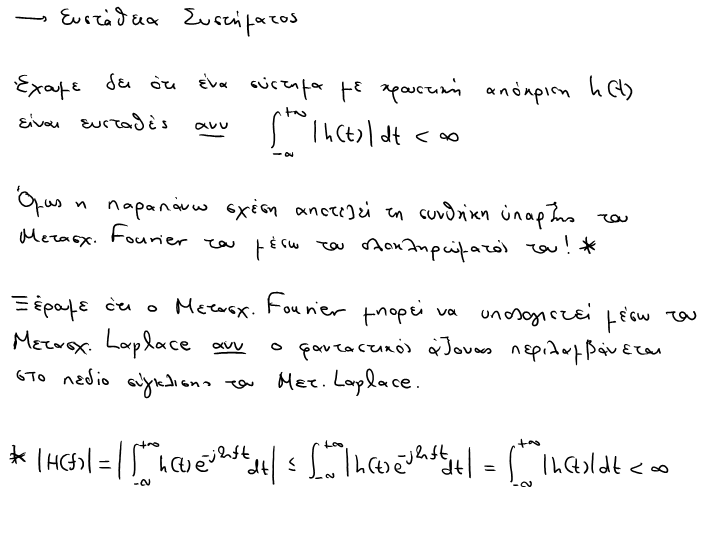 → Ευστάθεια Συστήματος
Έχουμε δει ότι ένα σύστημα με κρουστική απόκριση h(t)
είναι ευσταθές ανν ∫_{-∞}^{+∞} |h(t)| dt < ∞
Όμως η παραπάνω σχέση αποτελεί τη συνθήκη ύπαρξης του
Μετασχ. Fourier του μέσω του ολοκληρώματός του! *
Ξέρουμε ότι ο Μετασχ. Fourier μπορεί να υπολογιστεί μέσω του
Μετασχ. Laplace ανν ο φανταστικός άξονας περιλαμβάνεται
στο πεδίο σύγκλισης του Μετ. Laplace.
* |H(f)| = |∫_{-∞}^{+∞} h(t) e^{-j2πft} dt| ≤ ∫_{-∞}^{+∞} |h(t) e^{-j2πft} dt| = ∫_{-∞}^{+∞} |h(t)| dt < ∞